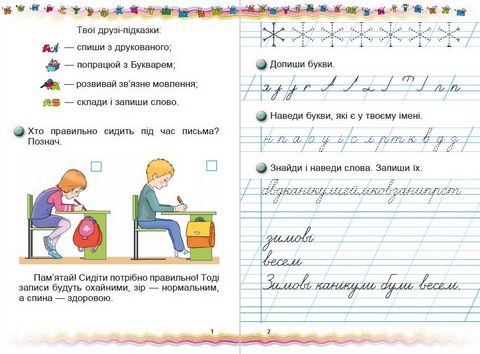 Твої друзі-підказки:
— спиши з друкованого;
— попрацюй з Букварем;
— розвивай зв'язне мовлення;
— склади і запиши слово.
Хто правильно сидить під час письма?
Познач.
Пам'ятай! Сидіти потрібно правильно! Тоді
записи будуть охайними, зір — нормальним,
а спина — здоровою.
1
Допиши букви.
Наведи букви, які є у твоєму імені.
н п а о у і с м р т к в д з
Знайди і наведи слова. Запиши їх.
зимові
весем
Зимові канікули були весем.
2